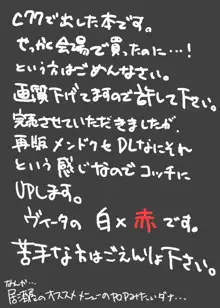 C77で出した本です。
せっかく会場で買ったのに…！
という方はごめんなさい。
画質下げてますので許して下さい。
完売させていただきましたが、
再版メンドクセDLなにそれ
という感じなのでコッチに
UPします。
ヴィータの 白×赤です。
苦手な方はごえんりょ下さい。
なんか…
居酒屋のオススメメニューのPOPみたいダナ…